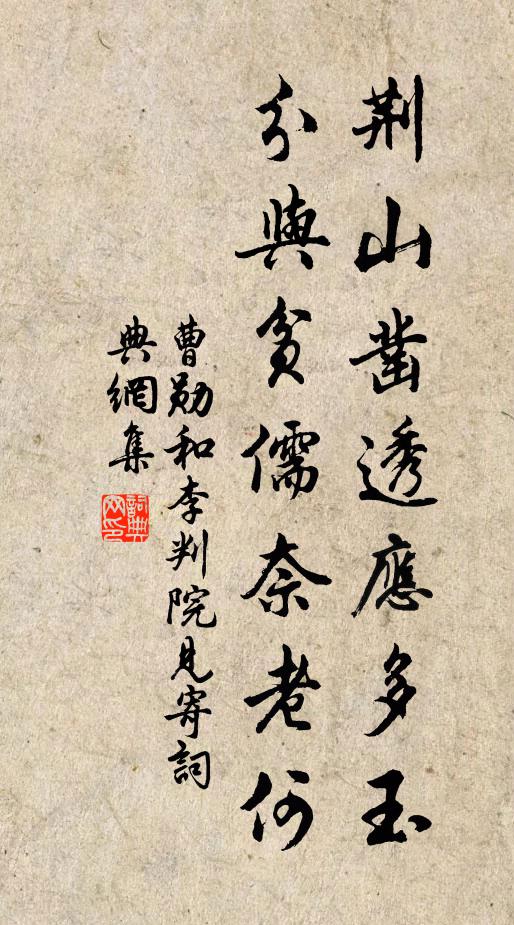 荆山凿透應多玉
分與貧儒奈老何
曹勛和李判院見寄詞
典網集
詞典网印